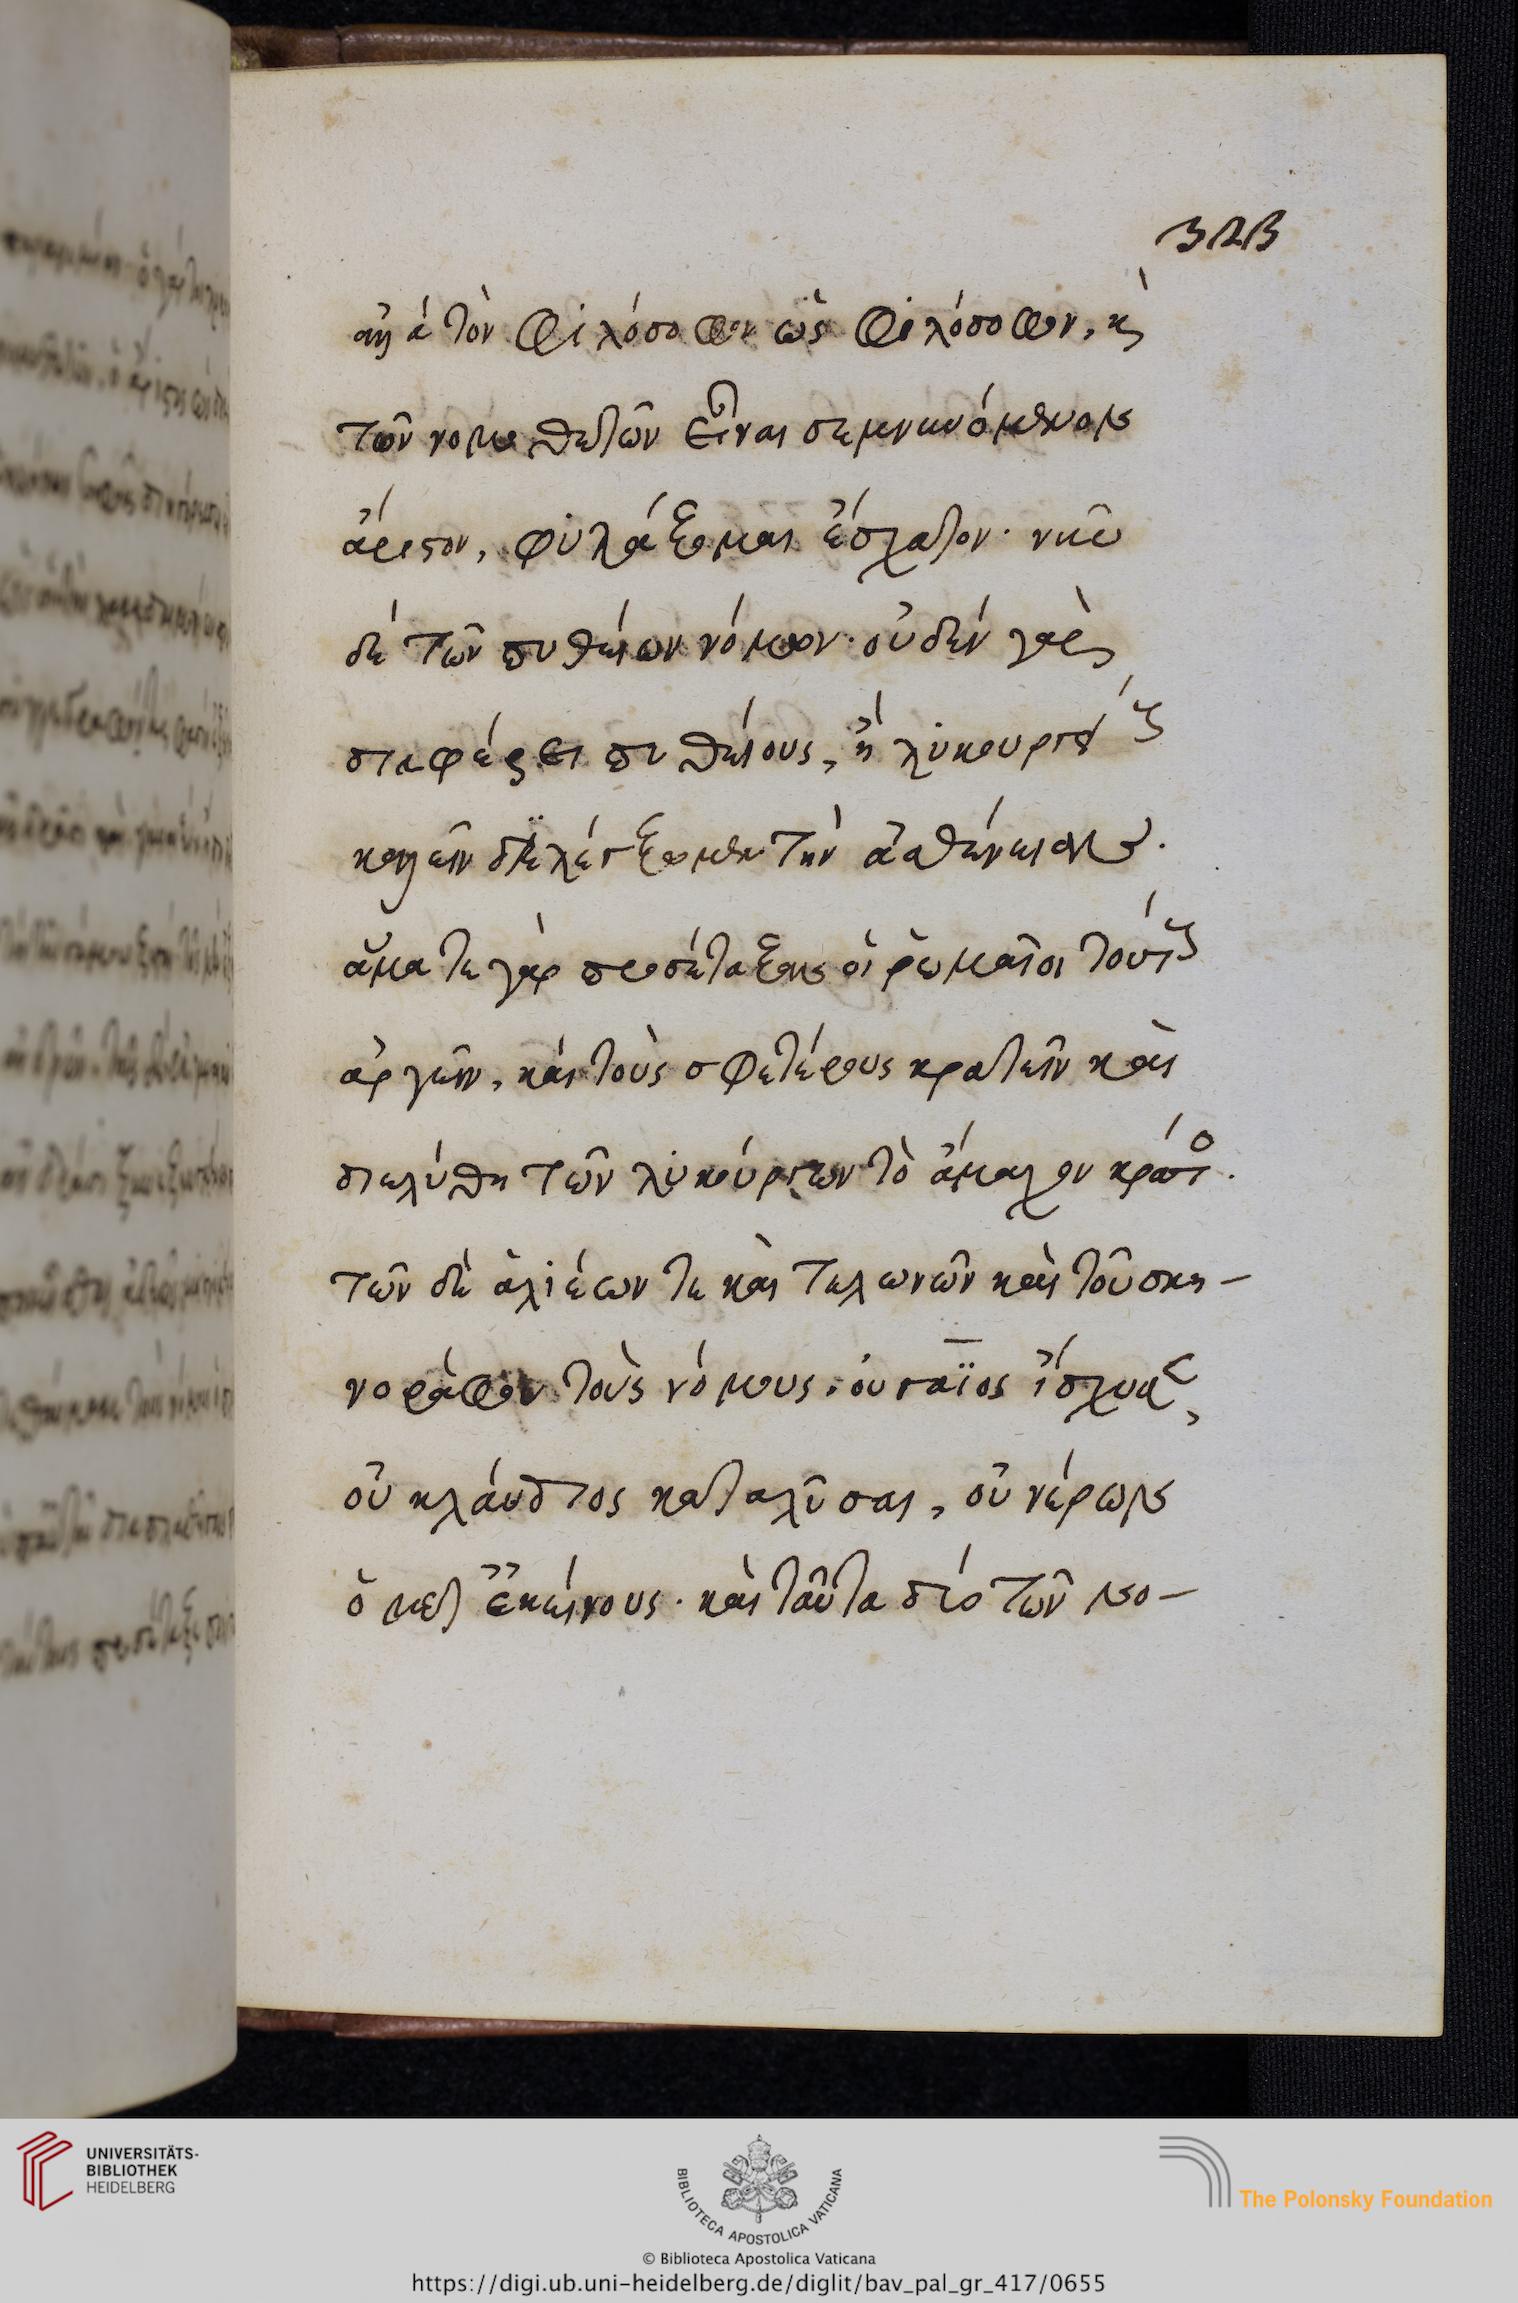 τὸν φιλόσοφον ὡς φιλόσοφον, κὶ
τῶν νομοθετῶν εἶναι σεμνυνόμενον
ἄριστον, φυλάξομαι ἔσχατον· νῦν
δὲ τῶν πυθίων νόμων· οὐδὲν γὰρ
διαφέρει πυθίους, ἢ λυκούργους
καλεῖν διελέγξομεν τὴν ἀσθένειαν.
ἅμα τε γὰρ προσέταξαν οἱ ῥωμαῖοι τούτους
ἀργεῖν, καὶ τοὺς σφετέρους κρατεῖν καὶ
διελύθη τῶν λυκούργων τὸ ἄμαχον κράτος.
τῶν δὲ ἁλιέων τε καὶ τελωνῶν καὶ τοῦ σκη-
νοράφου τοὺς νόμους, οὐ γάϊος ἴσχυσε,
οὐ κλάυδιος καταλῦσαι, οὐ νέρων
ὁ μετ ἐκείνους. καὶ ταῦτα δύο τῶν νο-
UNIVERSITÄTS-
BIBLIOTHEK
HEIDELBERG
BIBLIOTECA APOSTOLICA VATICANA
The Polonsky Foundation
© Biblioteca Apostolica Vaticana
https://digi.ub.uni-heidelberg.de/diglit/bav_pal_gr_417/0655